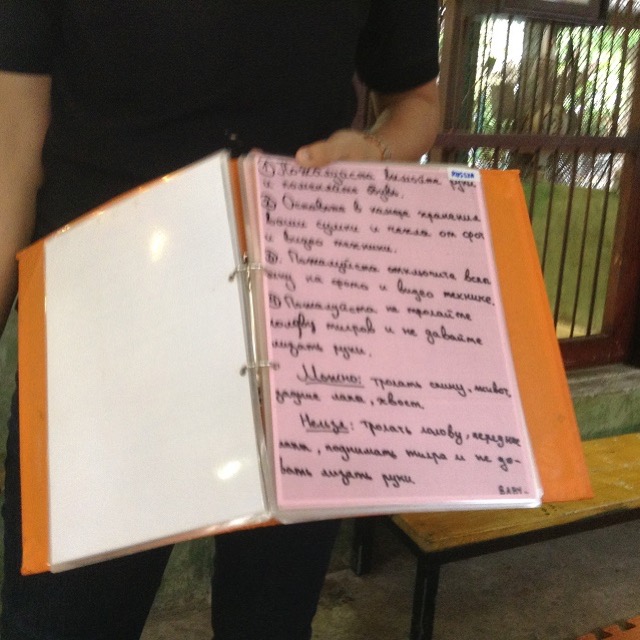 RUSSIA
1) Пожалуйста вымойте руки
и
② Оставьте в конце
ваши сумки и чехла от фото
и видео техники.
③. Пожалуйста отключите
на фото и видео технике.
④ Пожалуйста не трогайте
тигров и не давайте
лизать руки.
Можно: трогать спину, живот,
задние лапы, хвост.
Нельзя: трогать голову, передние
лапы, поднимать тигра и не да-
вать лизать руки